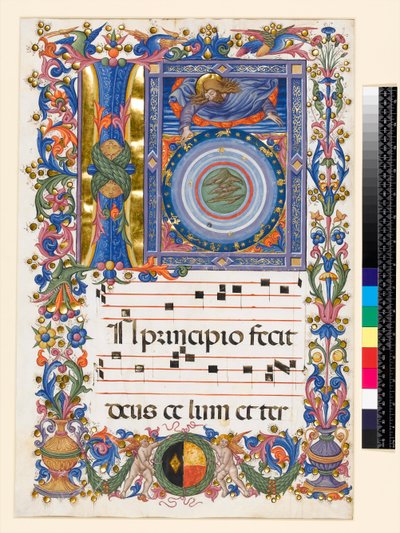 IN principio fecit
deus ce lum et ter